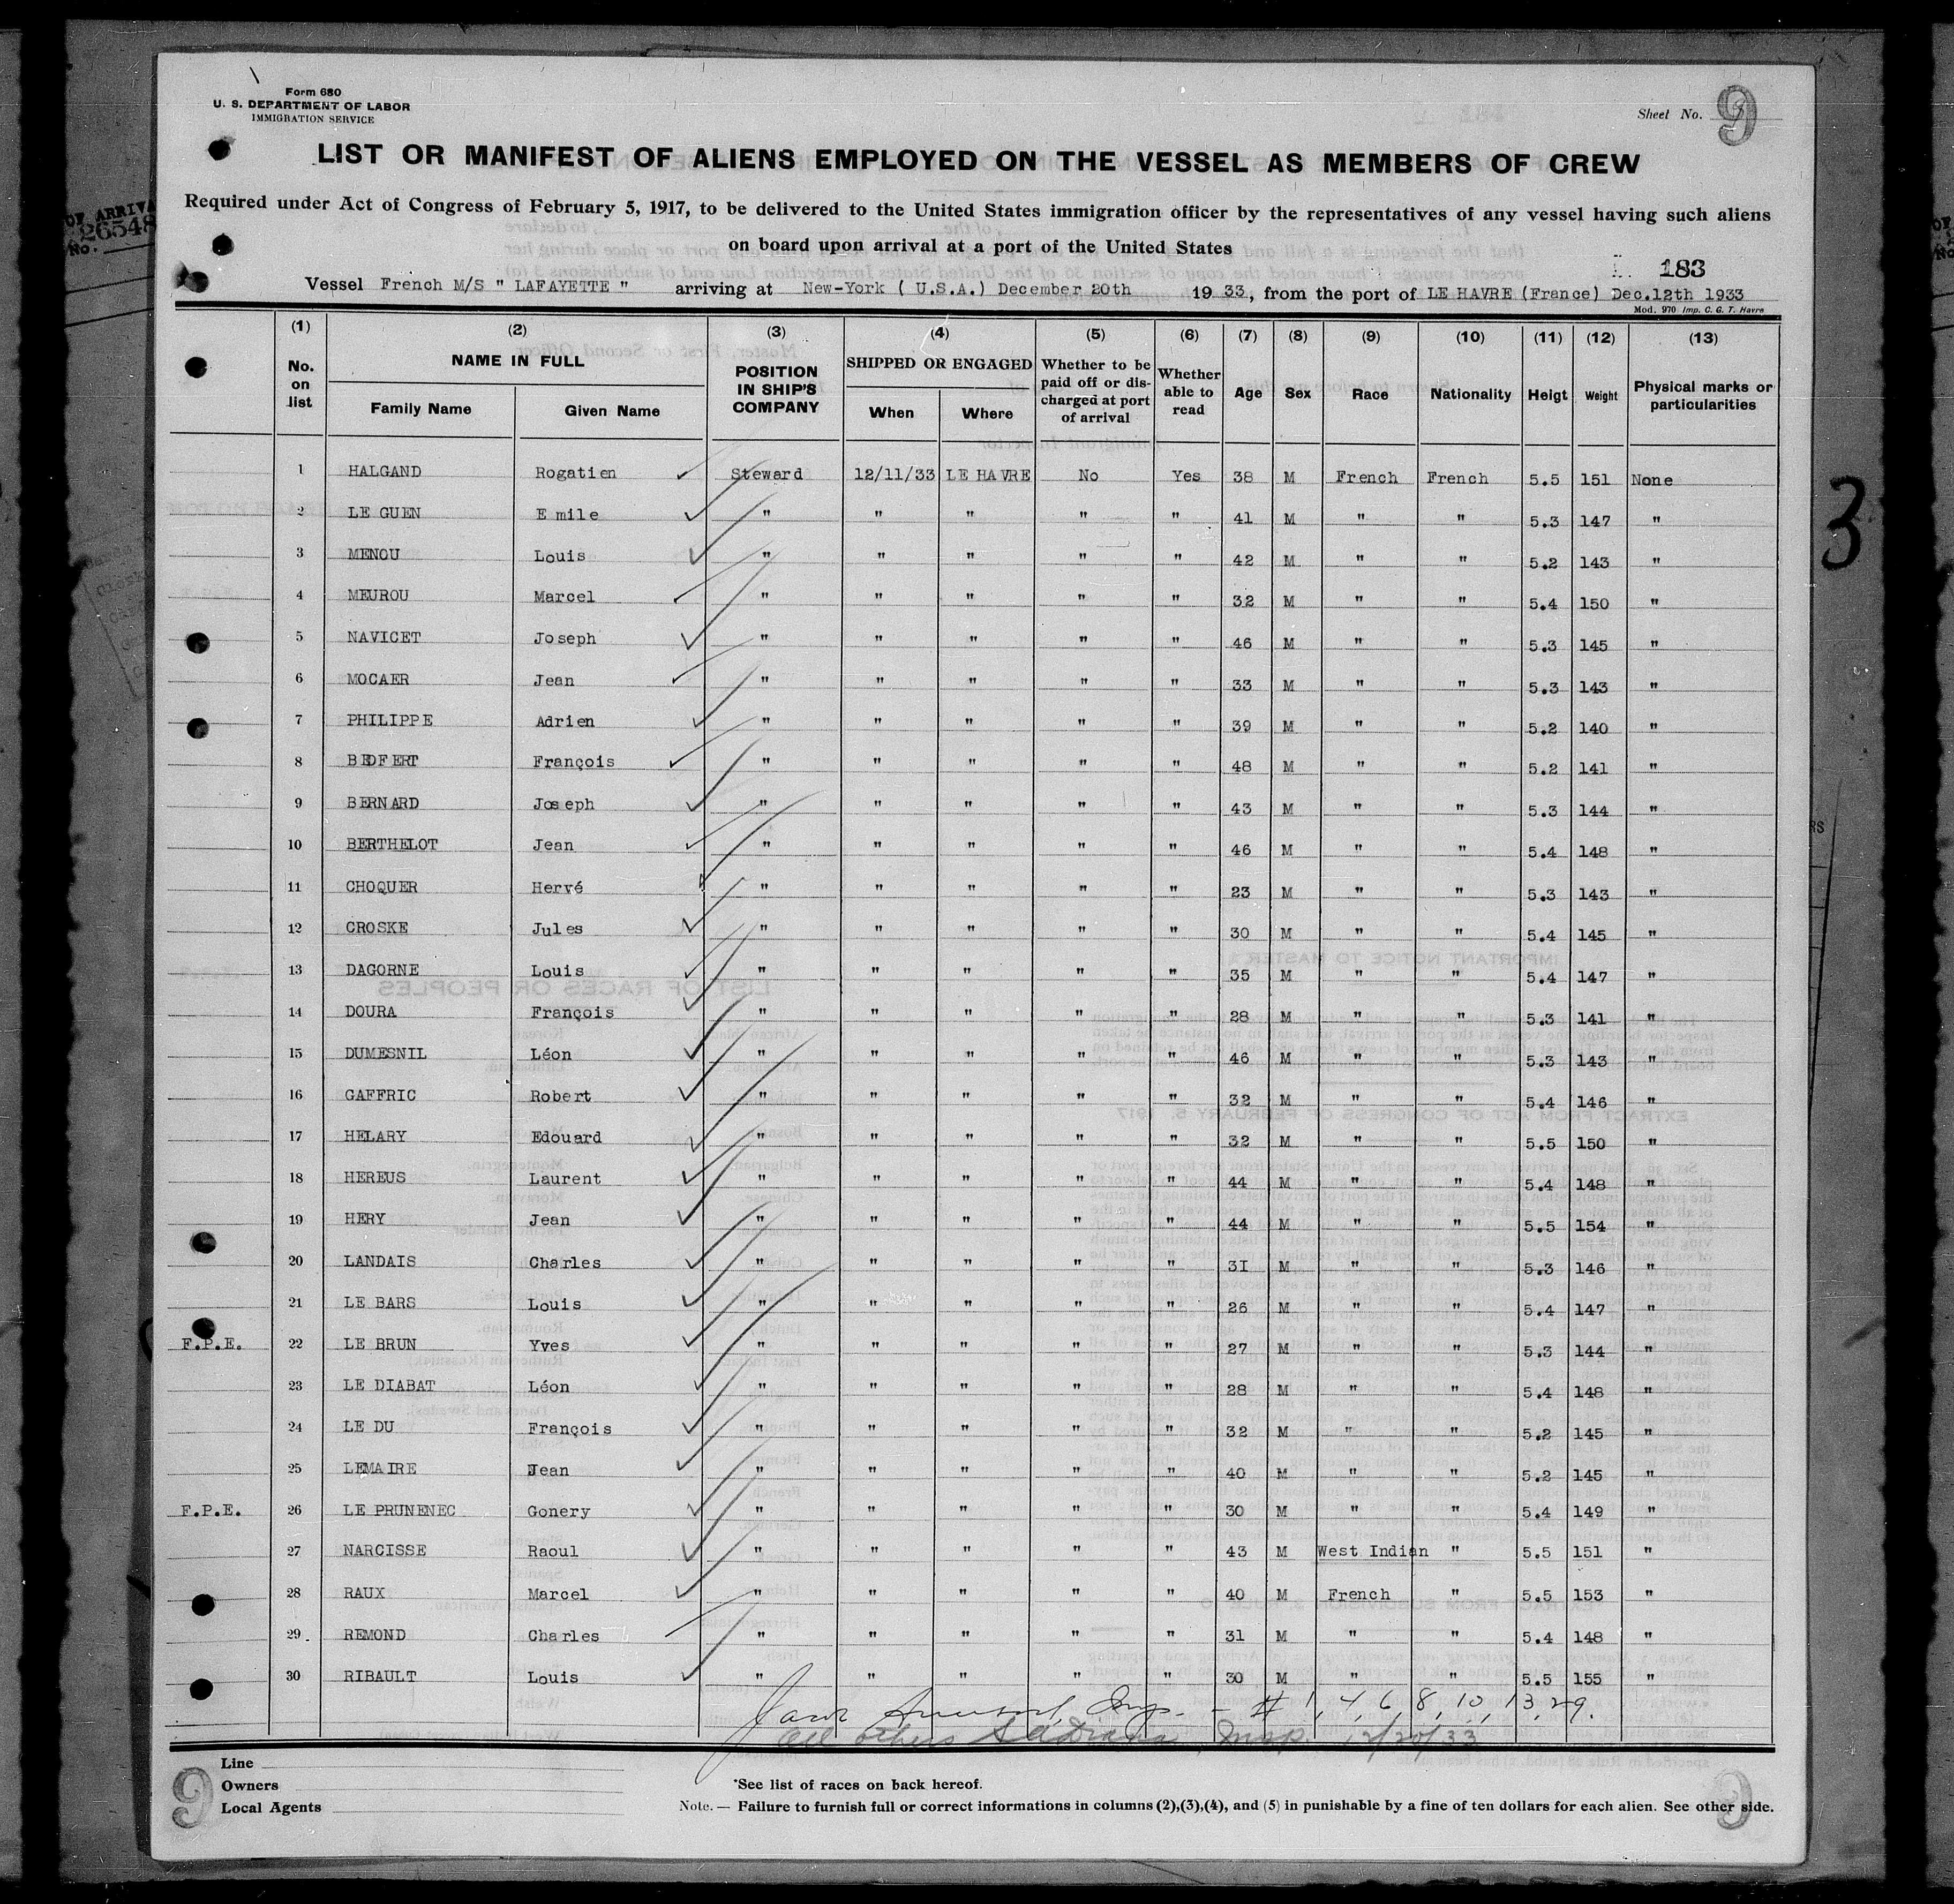 Form 680
U. S. DEPARTMENT OF LABOR
IMMIGRATION SERVICE
Sheet No. 9
LIST OR MANIFEST OF ALIENS EMPLOYED ON THE VESSEL AS MEMBERS OF CREW
Required under Act of Congress of February 5, 1917, to be delivered to the United States immigration officer by the representatives of any vessel having such aliens
on board upon arrival at a port of the United States
183
Vessel French M/S " LAFAYETTE " arriving at New-York ( U.S.A.) December 20th 19 33, from the port of LE HAVRE (France) Dec.12th 1933
Mod. 970 Imp. C. G. T. Havre
(1) (2) (3) (4) (5) (6) (7) (8) (9) (10) (11) (12) (13)
No. on list NAME IN FULL Family Name Given Name POSITION IN SHIP'S COMPANY SHIPPED OR ENGAGED When Where Whether to be paid off or discharged at port of arrival Whether able to read Age Sex Race Nationality Heigt Weight Physical marks or particularities
1 HALGAND Rogatien Steward 12/11/33 LE HAVRE No Yes 38 M French French 5.5 151 None
2 LE GUEN Emile " " " " " 41 M " " 5.3 147 "
3 MENOU Louis " " " " " 42 M " " 5.2 143 "
4 MEUROU Marcel " " " " " 32 M " " 5.4 150 "
5 NAVICET Joseph " " " " " 46 M " " 5.3 145 "
6 MOCAER Jean " " " " " 33 M " " 5.3 143 "
7 PHILIPPE Adrien " " " " " 39 M " " 5.2 140 "
8 BEDFERT François " " " " " 48 M " " 5.2 141 "
9 BERNARD Joseph " " " " " 43 M " " 5.3 144 "
10 BERTHELOT Jean " " " " " 46 M " " 5.4 148 "
11 CHOQUER Hervé " " " " " 23 M " " 5.3 143 "
12 CROSKE Jules " " " " " 30 M " " 5.4 145 "
13 DAGORNE Louis " " " " " 35 M " " 5.4 147 "
14 DOURA François " " " " " 28 M " " 5.3 141 "
15 DUMESNIL Léon " " " " " 46 M " " 5.3 143 "
16 GAFFRIC Robert " " " " " 32 M " " 5.4 146 "
17 HELARY Edouard " " " " " 32 M " " 5.5 150 "
18 HEREUS Laurent " " " " " 44 M " " 5.4 148 "
19 HERY Jean " " " " " 44 M " " 5.5 154 "
20 LANDAIS Charles " " " " " 31 M " " 5.3 146 "
21 LE BARS Louis " " " " " 26 M " " 5.4 147 "
F.P.E. 22 LE BRUN Yves " " " " " 27 M " " 5.3 144 "
23 LE DIABAT Léon " " " " " 28 M " " 5.4 148 "
24 LE DU François " " " " " 32 M " " 5.2 145 "
25 LEMAIRE Jean " " " " " 40 M " " 5.2 145 "
F.P.E. 26 LE PRUNENEC Gonery " " " " " 30 M " " 5.4 149 "
27 NARCISSE Raoul " " " " " 43 M West Indian " 5.5 151 "
28 RAUX Marcel " " " " " 40 M French " 5.5 153 "
29 REMOND Charles " " " " " 31 M " " 5.4 148 "
30 RIBAULT Louis " " " " " 30 M " " 5.5 155 "
Insp. - # 1, 4, 6, 8, 10, 13, 29.
All others Insp. 12/20/33
Line
Owners
Local Agents
9
*See list of races on back hereof.
Note. — Failure to furnish full or correct informations in columns (2),(3),(4), and (5) in punishable by a fine of ten dollars for each alien. See other side.
9
3
26548